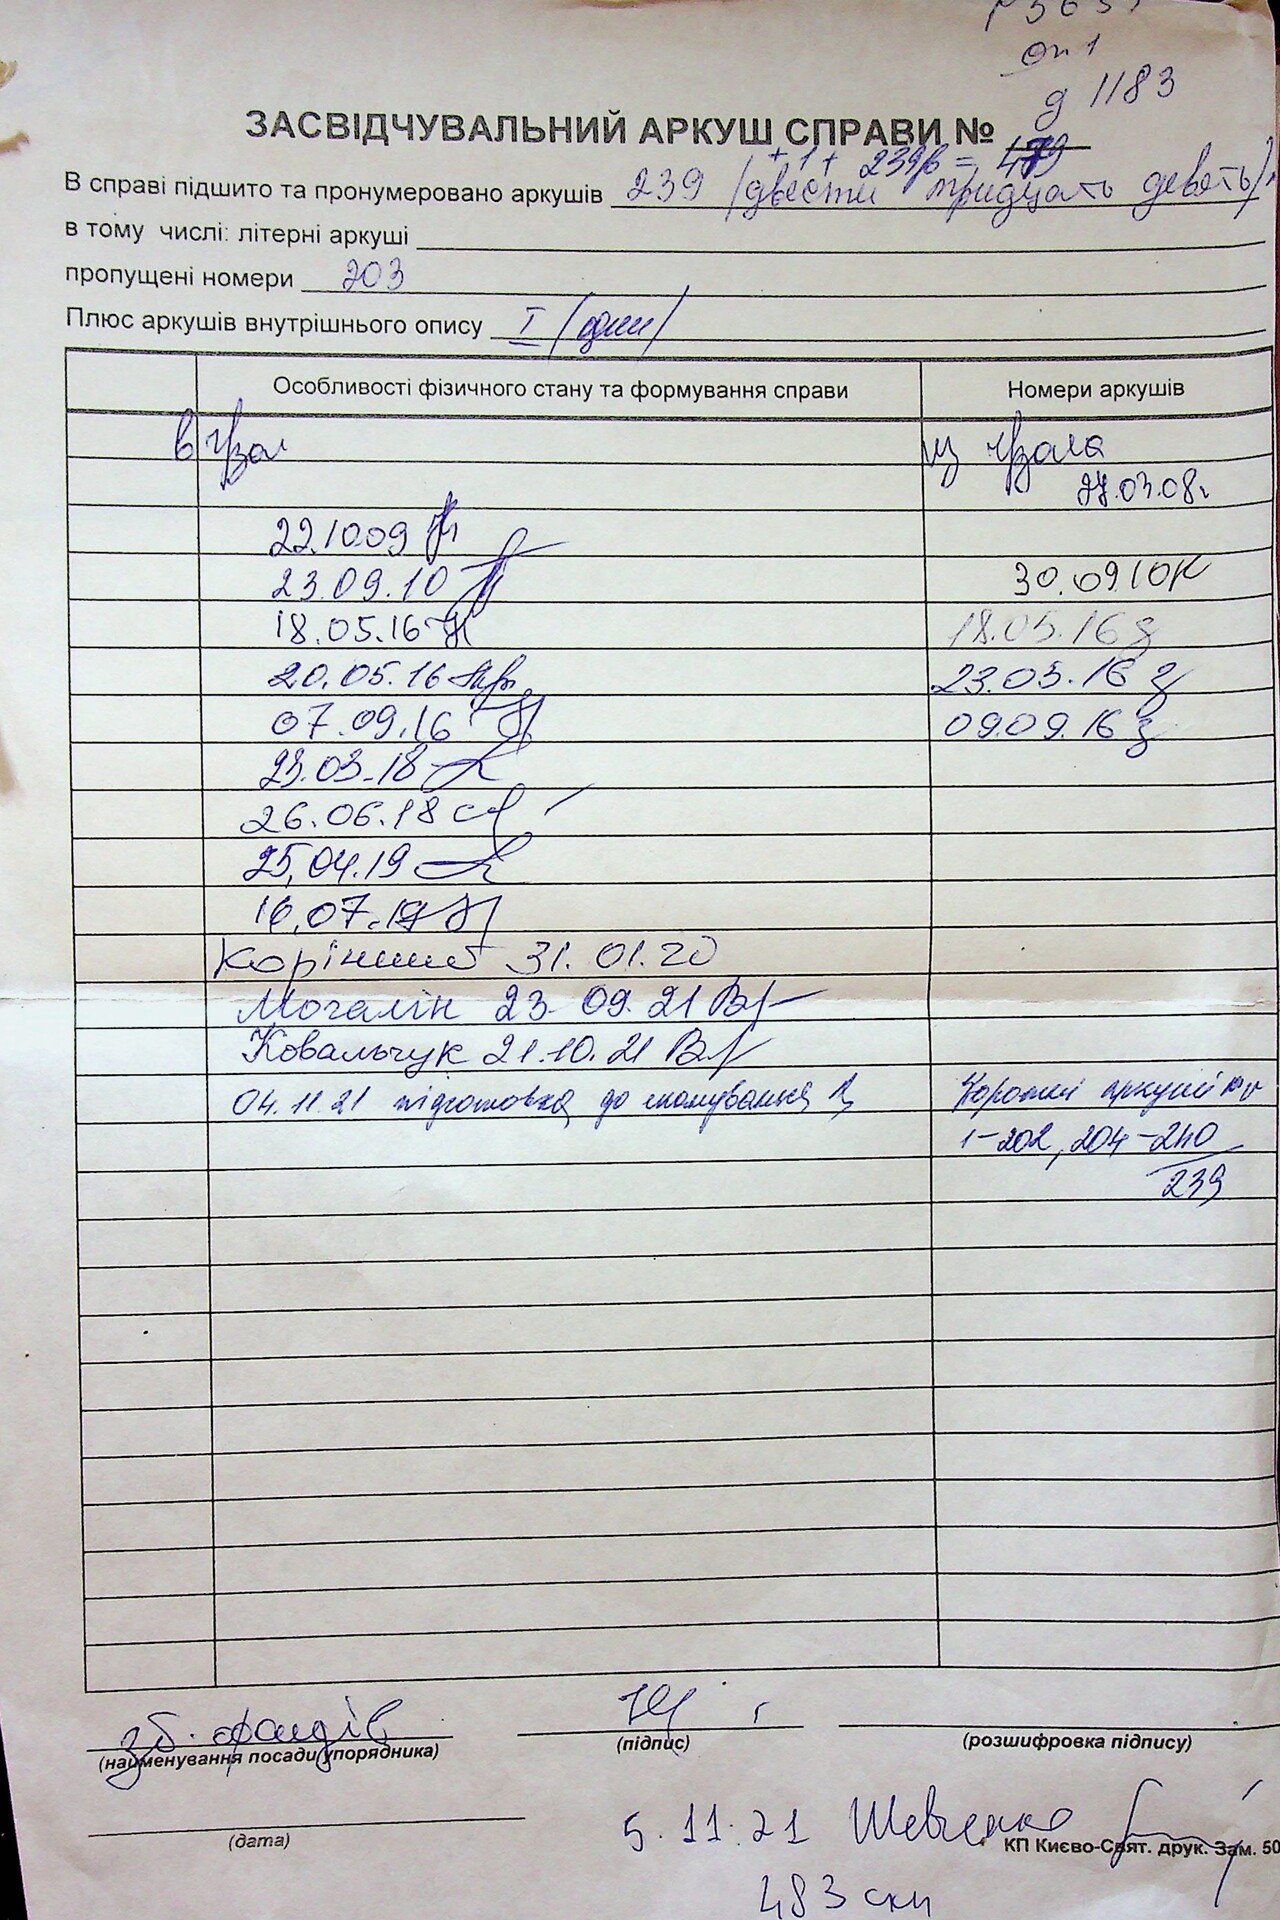 оп 1
д 1183
ЗАСВІДЧУВАЛЬНИЙ АРКУШ СПРАВИ №
+ 1 + 239 = 479
В справі підшито та пронумеровано аркушів 239 (двести тридцать девять)
в тому числі: літерні аркуші
пропущені номери 203
Плюс аркушів внутрішнього опису I (один)
Особливості фізичного стану та формування справи Номери аркушів
в ч/зал из ч/зала
27.03.08г
22.10.09
23.09.10 30.09.10
18.05.16 18.05.16
20.05.16 23.05.16
07.09.16 09.09.16
23.03.18
26.06.18
25.04.19
16.07.19
31.01.20
Могалін 23.09.21
Ковальчук 21.10.21
04.11.21 підготовка до сканування аркуші
1-202, 204-240
239
зб. фондів
(найменування посади упорядника) (підпис) (розшифровка підпису)
(дата)
5.11.21 Шевченко
КП Києво-Свят. друк. Зам. 50
483 скн